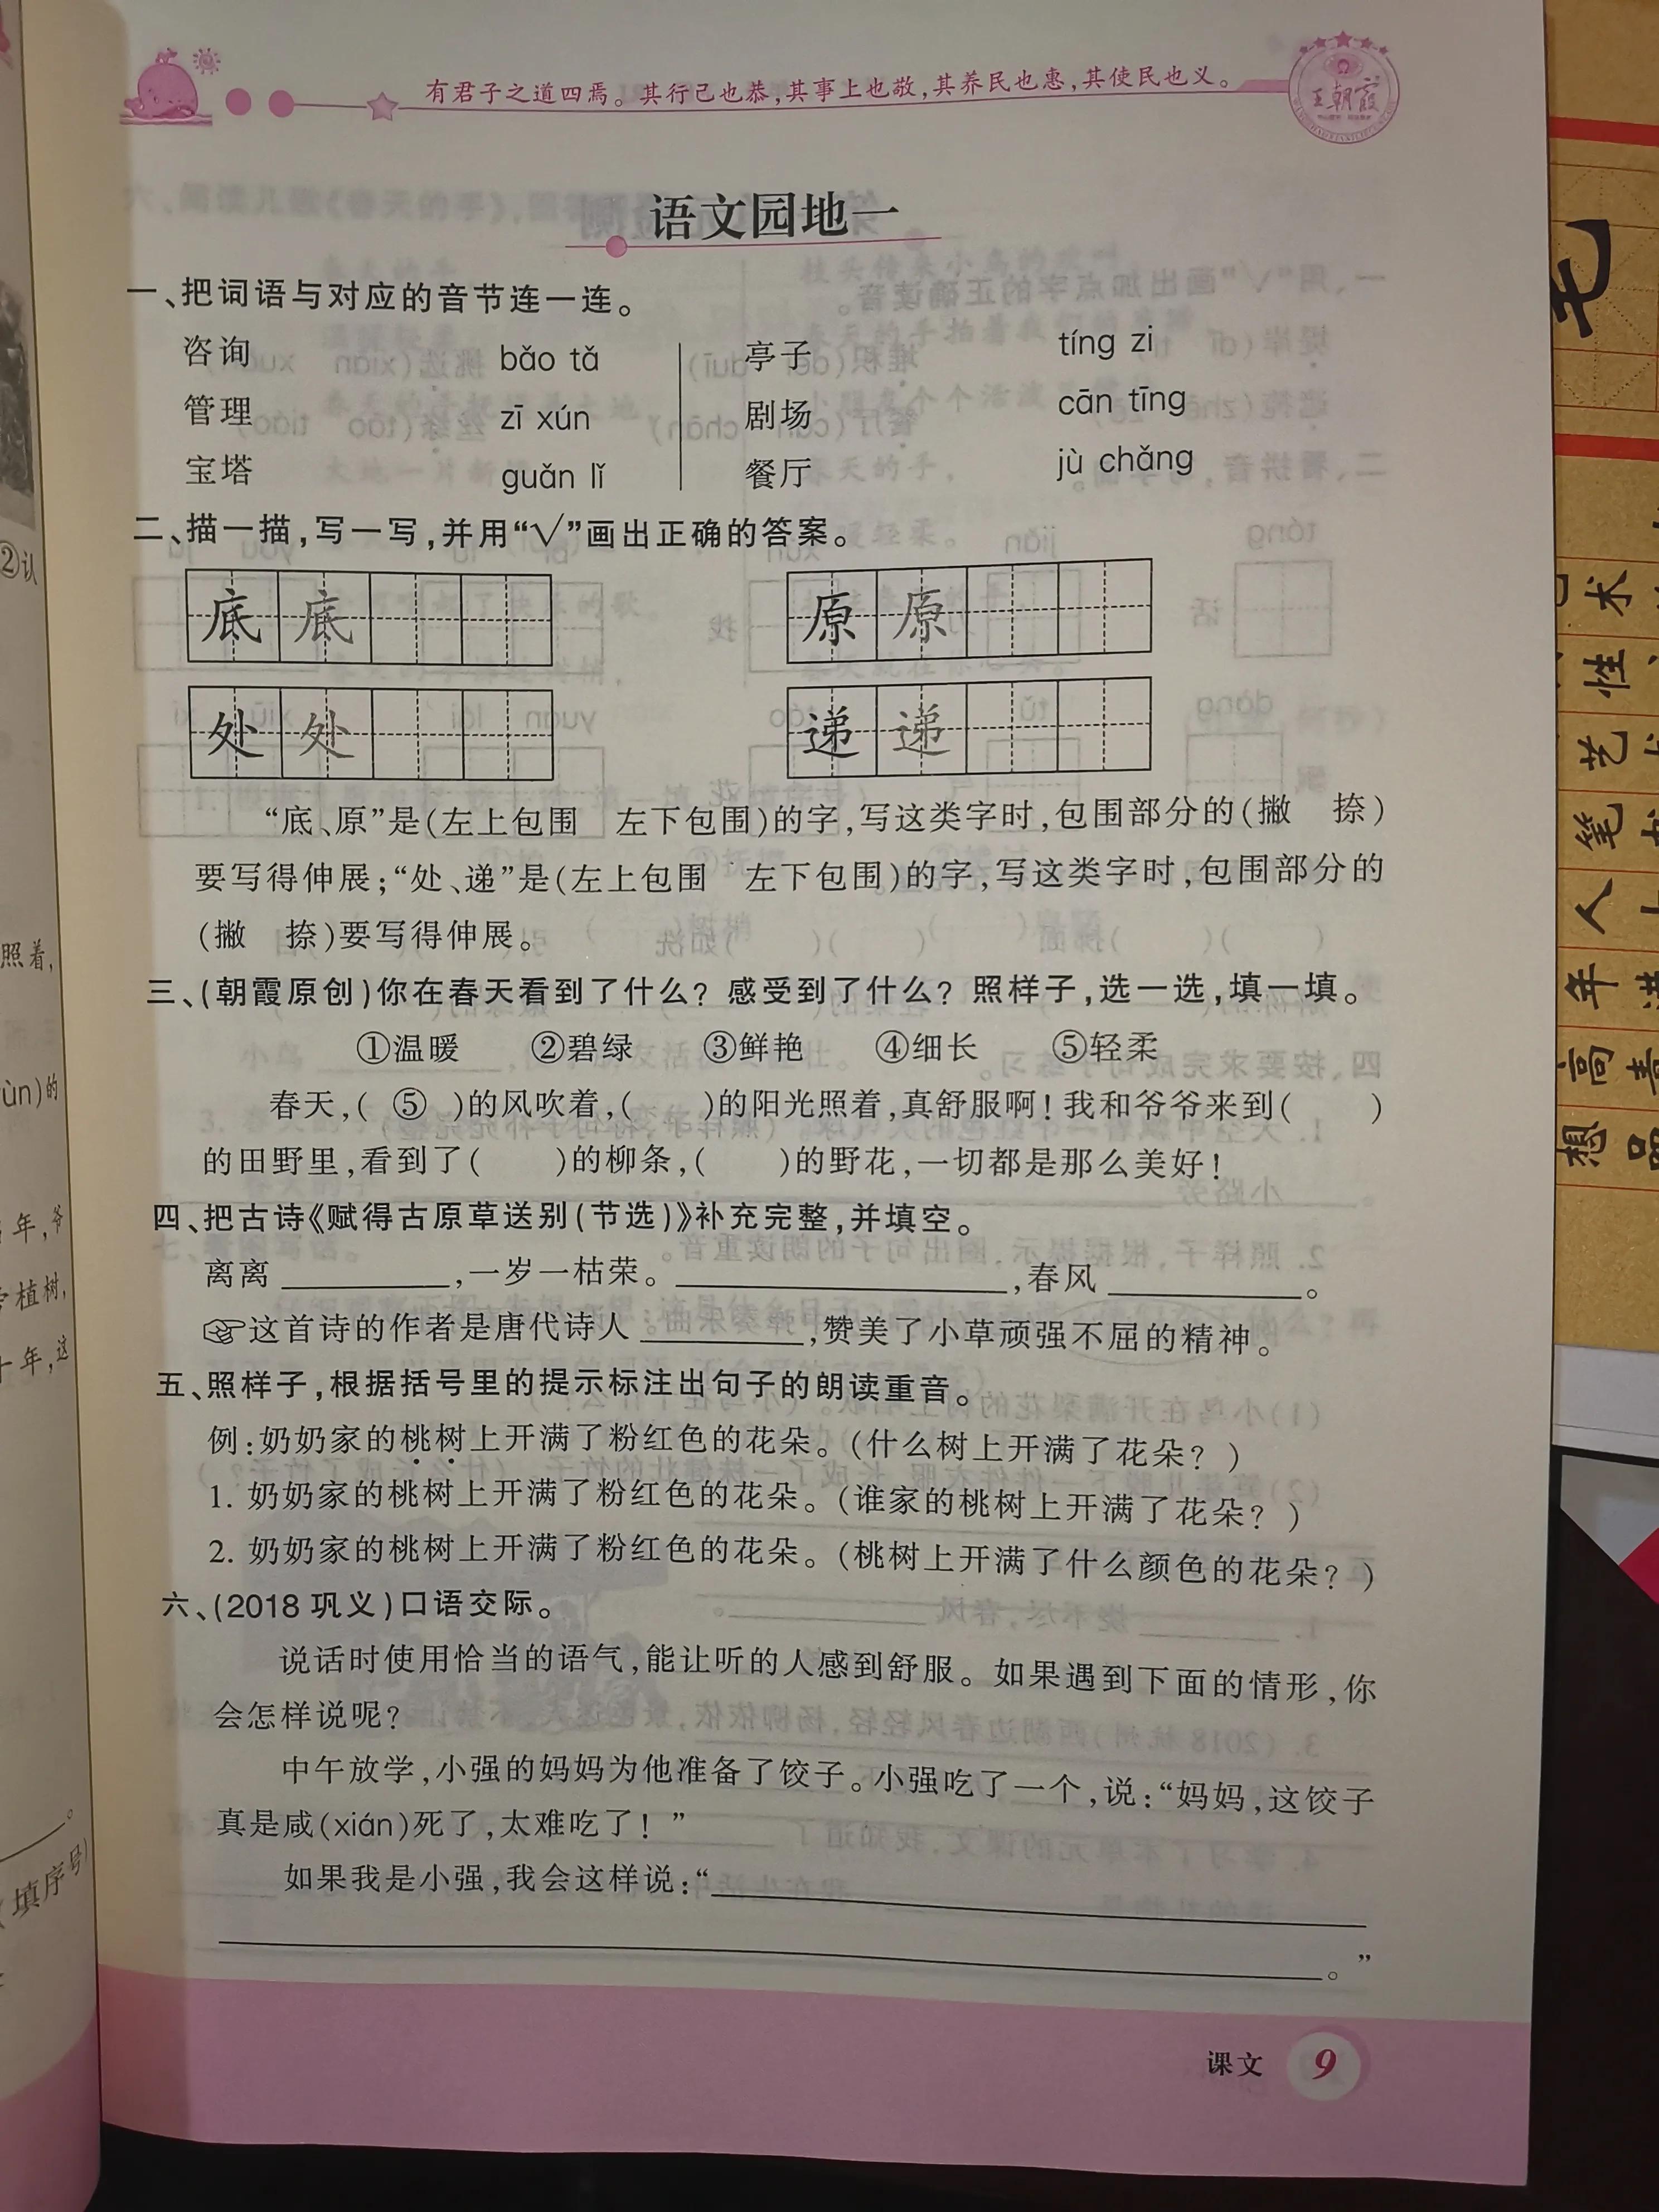 有君子之道四焉。其行己也恭,其事上也敬,其养民也惠,其使民也义。
王朝霞
语文园地一
一、把词语与对应的音节连一连。
咨询 bǎo tǎ 亭子 tíng zi
管理 zī xún 剧场 cān tīng
宝塔 guǎn lǐ 餐厅 jù chǎng
二、描一描,写一写,并用“√”画出正确的答案。
底 底 原 原
处 处 递 递
“底、原”是(左上包围 左下包围)的字,写这类字时,包围部分的(撇 捺)
要写得伸展;“处、递”是(左上包围 左下包围)的字,写这类字时,包围部分的
(撇 捺)要写得伸展。
三、(朝霞原创)你在春天看到了什么?感受到了什么?照样子,选一选,填一填。
①温暖 ②碧绿 ③鲜艳 ④细长 ⑤轻柔
春天,( ⑤ )的风吹着,( )的阳光照着,真舒服啊!我和爷爷来到( )
的田野里,看到了( )的柳条,( )的野花,一切都是那么美好!
四、把古诗《赋得古原草送别(节选)》补充完整,并填空。
离离__________,一岁一枯荣。____________________,春风____________。
☞这首诗的作者是唐代诗人__________,赞美了小草顽强不屈的精神。
五、照样子,根据括号里的提示标注出句子的朗读重音。
例:奶奶家的桃树上开满了粉红色的花朵。(什么树上开满了花朵?)
1. 奶奶家的桃树上开满了粉红色的花朵。(谁家的桃树上开满了花朵?)
2. 奶奶家的桃树上开满了粉红色的花朵。(桃树上开满了什么颜色的花朵?)
六、(2018 巩义)口语交际。
说话时使用恰当的语气,能让听的人感到舒服。如果遇到下面的情形,你
会怎样说呢?
中午放学,小强的妈妈为他准备了饺子。小强吃了一个,说:“妈妈,这饺子
真是咸(xián)死了,太难吃了!”
如果我是小强,我会这样说:“______________________________
______________________________。”
课文 9
②认
照着,
ùn)的
年,爷
植树,
十年,这
。
填序号)
术
性
艺
笔
人
年
高
想
品